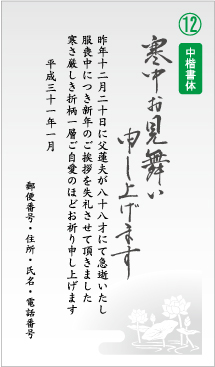 ⑫
中楷書体
寒中お見舞い
申し上げます
昨年十二月二十日に父蓮夫が八十八才にて急逝いたし
服喪中につき新年のご挨拶を失礼させて頂きました
寒さ厳しき折柄一層ご自愛のほどお祈り申し上げます
平成三十一年一月
郵便番号・住所・氏名・電話番号